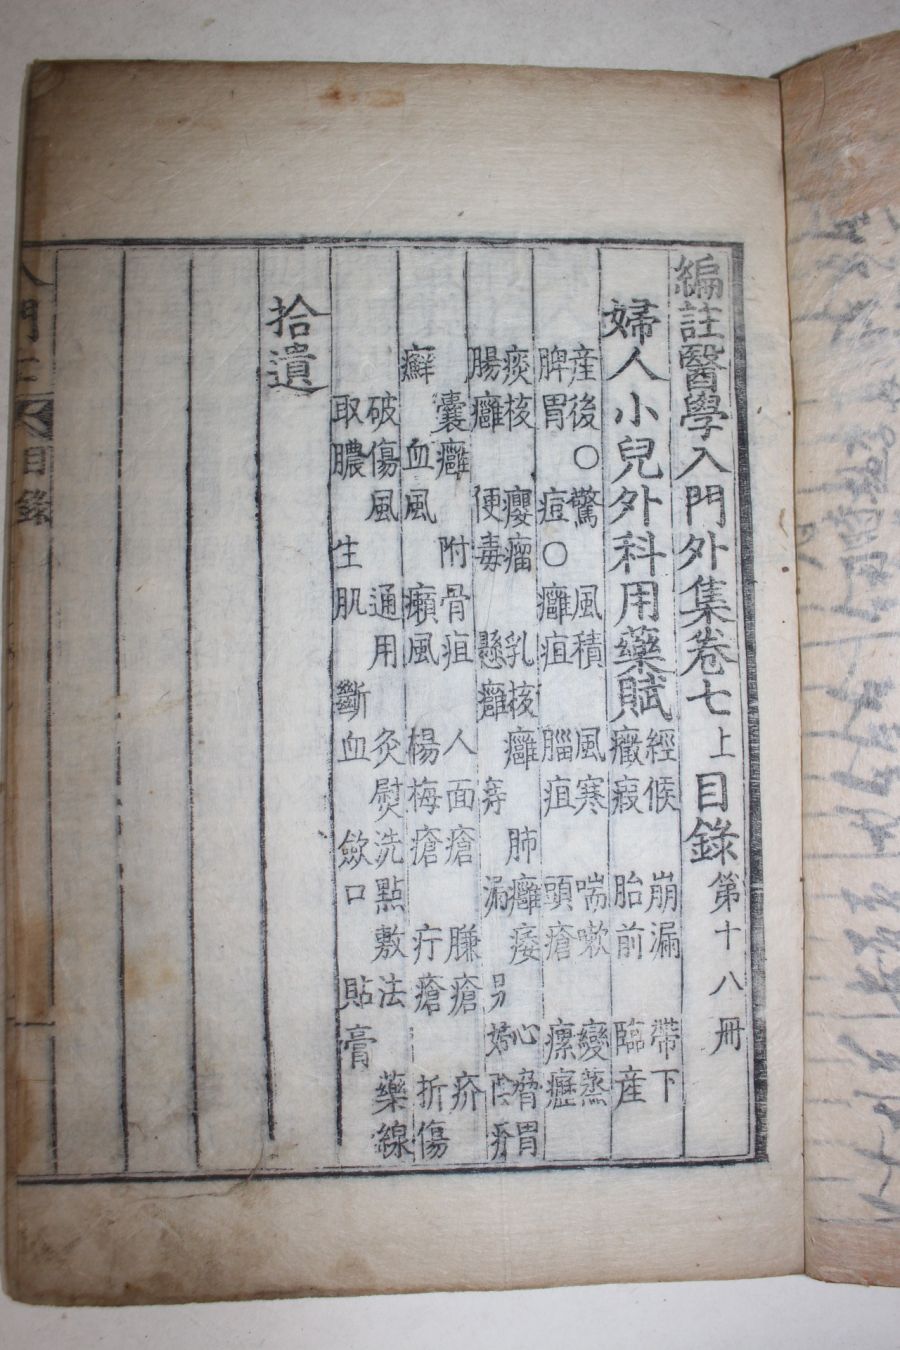 編註醫學入門外集卷七上目錄第十八冊
婦人小兒外科用藥賦
經候 崩漏 帶下
癥瘕 胎前 臨産
産後○驚 風積 風寒 喘嗽 變蒸
脾胃 痘○癰疽 腦疽 頭瘡 瘰癧
痰核 癭瘤 乳核癰 肺癰痿 心脅胃
腸癰 便毒 懸癰 痔漏 男婦陰瘡
囊癰 附骨疽 人面瘡 臁瘡 疥
癬 血風 癩風 楊梅瘡 疔瘡 折傷
破傷風 通用 灸熨洗點敷法 藥線
取膿 生肌 斷血 歛口 貼膏
拾遺
入門 目錄 一